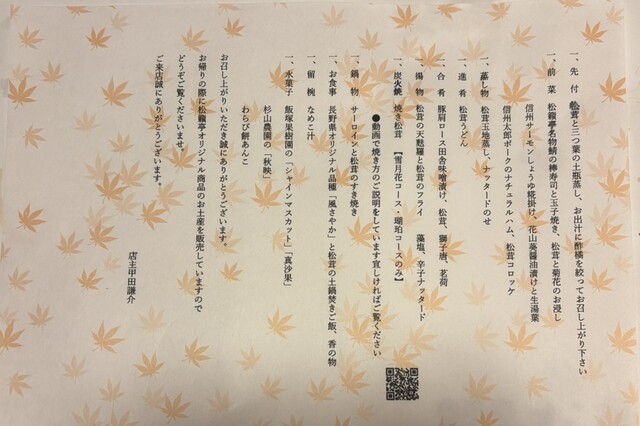 一、先　付　松茸と三つ葉の土瓶蒸し、お出汁に酢橘を絞ってお召し上がり下さい
一、前　菜　松籟亭名物鯖の棒寿司と玉子焼き、松茸と菊花のお浸し
信州サーモンしょうゆ糀掛け、花山葵醤油漬けと生湯葉
信州太郎ポークのナチュラルハム、松茸コロッケ
一、蒸し物　松茸玉地蒸し、ナッタードのせ
一、進　肴　松茸うどん
一、合　肴　豚肩ロース田舎味噌漬け、松茸、獅子唐、茗荷
一、揚　物　松茸の天麩羅と松茸のフライ　藻塩、辛子ナッタード
一、炭火焼　焼き松茸　【雪月花コース・瑚珀コースのみ】
●動画で焼き方のご説明をしています宜しければご覧ください
一、鍋　物　サーロインと松茸のすき焼き
一、お食事　長野県オリジナル品種「風さやか」と松茸の土鍋焚きご飯、香の物
一、留　椀　なめこ汁
一、水菓子　飯塚果樹園の「シャインマスカット」「真沙果」
杉山農園の「秋映」
わらび餅あんこ
お召し上がりいただき誠にありがとうございます。
お帰りの際に松籟亭オリジナル商品のお土産を販売していますので
どうぞご覧くださいませ。
ご来店誠にありがとうございます。
店主甲田謙介